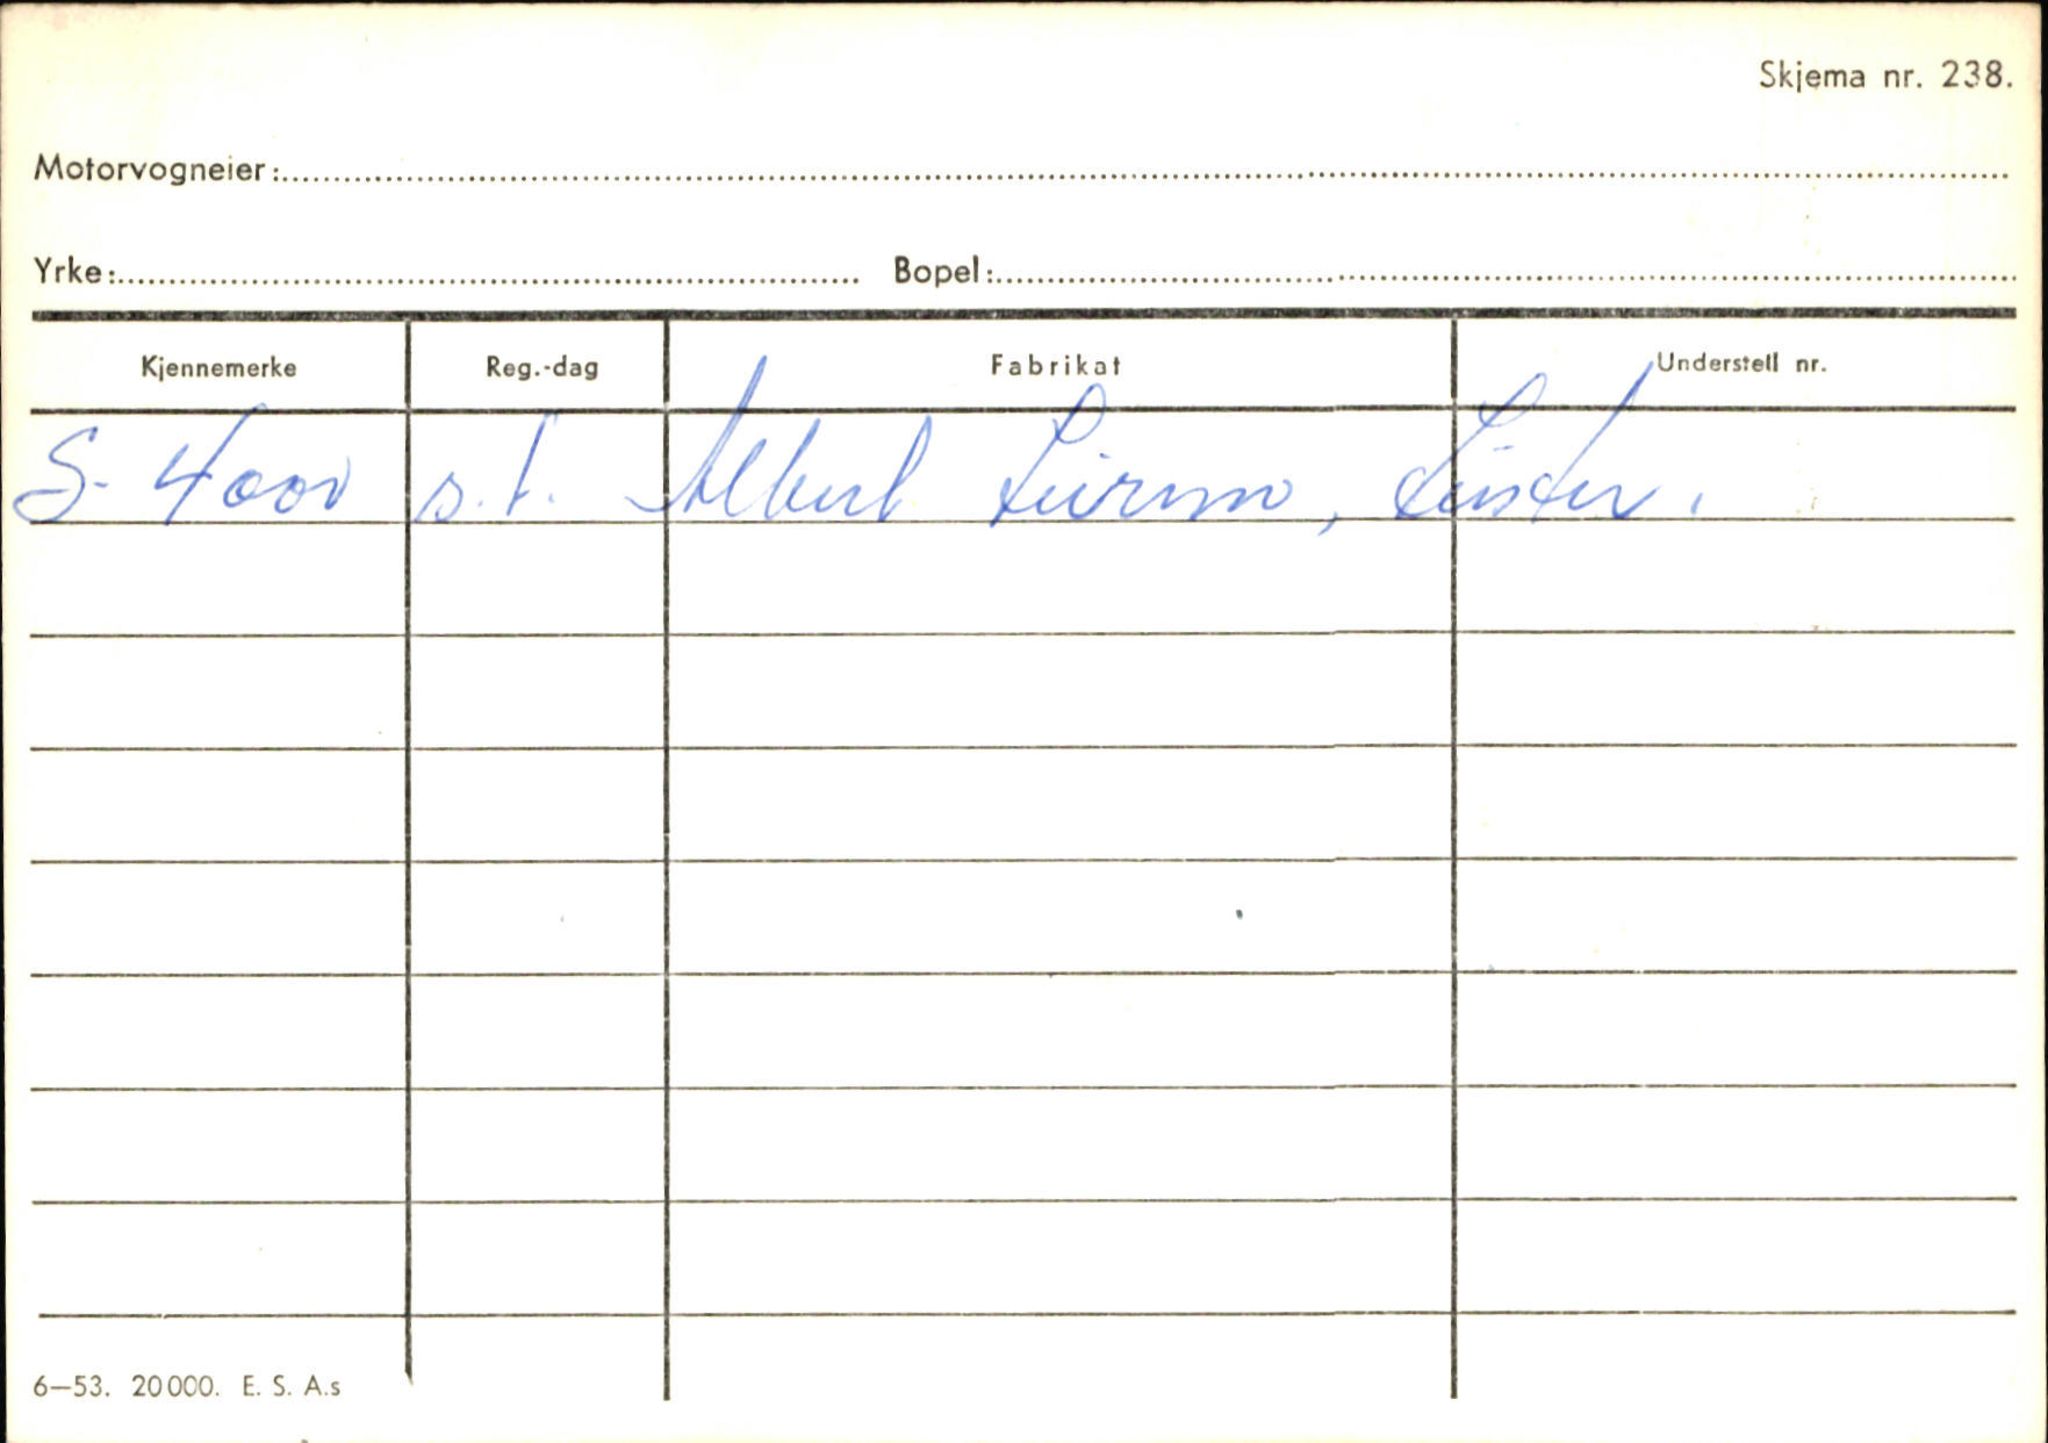 Skjema nr. 238.
Motorvogneier:
Yrke: Bopel:
Kjennemerke Reg.-dag Fabrikat Understell nr.
S- 4000 s.d. Albert Leirmo, Luster.
6—53. 20000. E. S. A.s